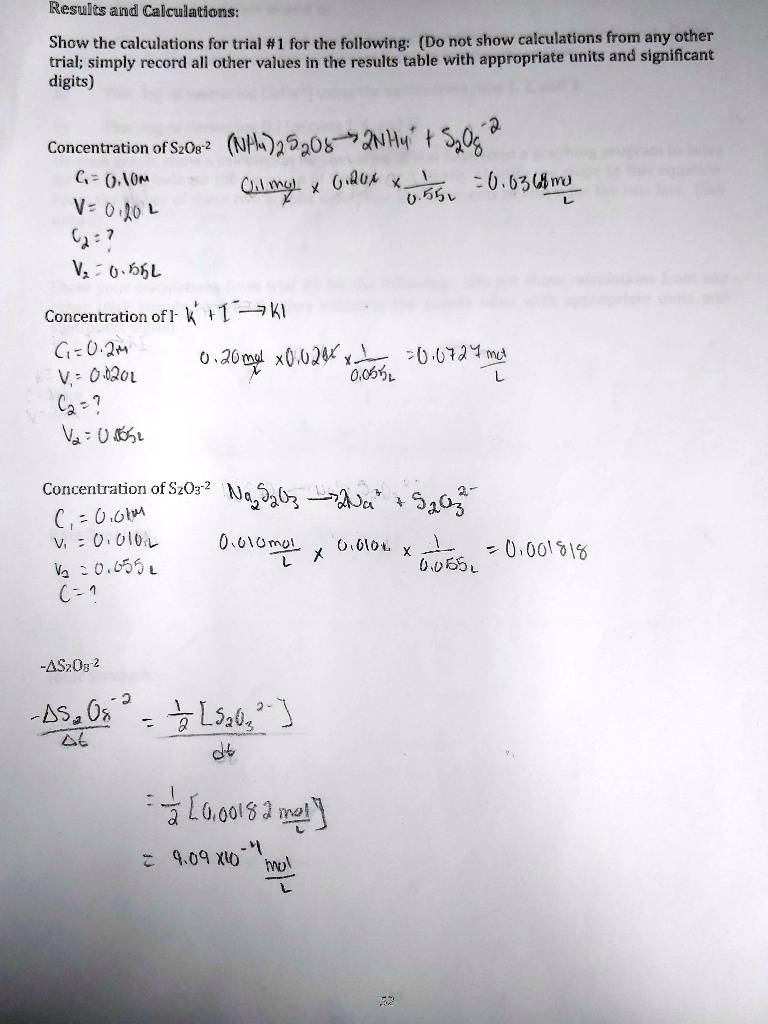 Results and Calculations:
Show the calculations for trial #1 for the following: (Do not show calculations from any other
trial; simply record all other values in the results table with appropriate units and significant
digits)
Concentration of S2O8-2 (NH4)2S2O8 → 2NH4+ + S2O8-2
C1 = 0.10M
0.1 mol/L x 0.20L x 1/0.55L = 0.0368 mol/L
V = 0.20 L
C2 = ?
V2 = 0.55L
Concentration of I- K+ + I- → KI
C1 = 0.2M
0.20 mol/L x 0.020L x 1/0.055L = 0.0727 mol/L
V1 = 0.020L
C2 = ?
V2 = 0.055L
Concentration of S2O3-2 Na2S2O3 → 2Na+ + S2O3 2-
C1 = 0.01M
V1 = 0.010L
0.010 mol/L x 0.010L x 1/0.055L = 0.001818
V2 = 0.055L
C = ?
-ΔS2O8-2
-ΔS2O8-2/Δt = 1/2 [S2O3 2-]/dt
= 1/2 [0.00182 mol/L]
= 9.09 x10-4 mol/L